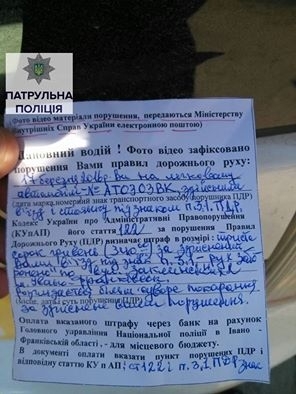 ПАТРУЛЬНА
ПОЛІЦІЯ
(Фото відео матеріали порушення, передаються Міністерству
внутрішніх Справ України електронною поштою)
Шановний водій ! Фото відео зафіксовано
порушення Вами правил дорожнього руху:
17 березня 2018р Ви на легковому
автомобілі АТ0303ВК здійснили
(дата, марка, номерний знак транспортного засобу, порушення ПДР)
в'їзд і стоянку під знаком п.3,1 ПДР
Кодексу України про Адміністративні Правопорушення
(КУпАП) його стаття 122 за порушення Правил
Дорожнього Руху (ПДР) визначає штраф в розмірі: триста
сорок гривень (340г) за здійснення
під знак п.3,1 - рух забо
ронено" по вул.
м. Івано-Франківськ
більш суворе покарання
за здійснене Вами порушення.
Оплата вказаного штрафу через банк на рахунок
Головного управління Національної поліції в Івано -
Франківській області , - для місцевого бюджету.
В документі оплати вказати пункт порушених ПДР і
відповідну статтю КУ п АП: ст122 і п.3,1 ПДР знак